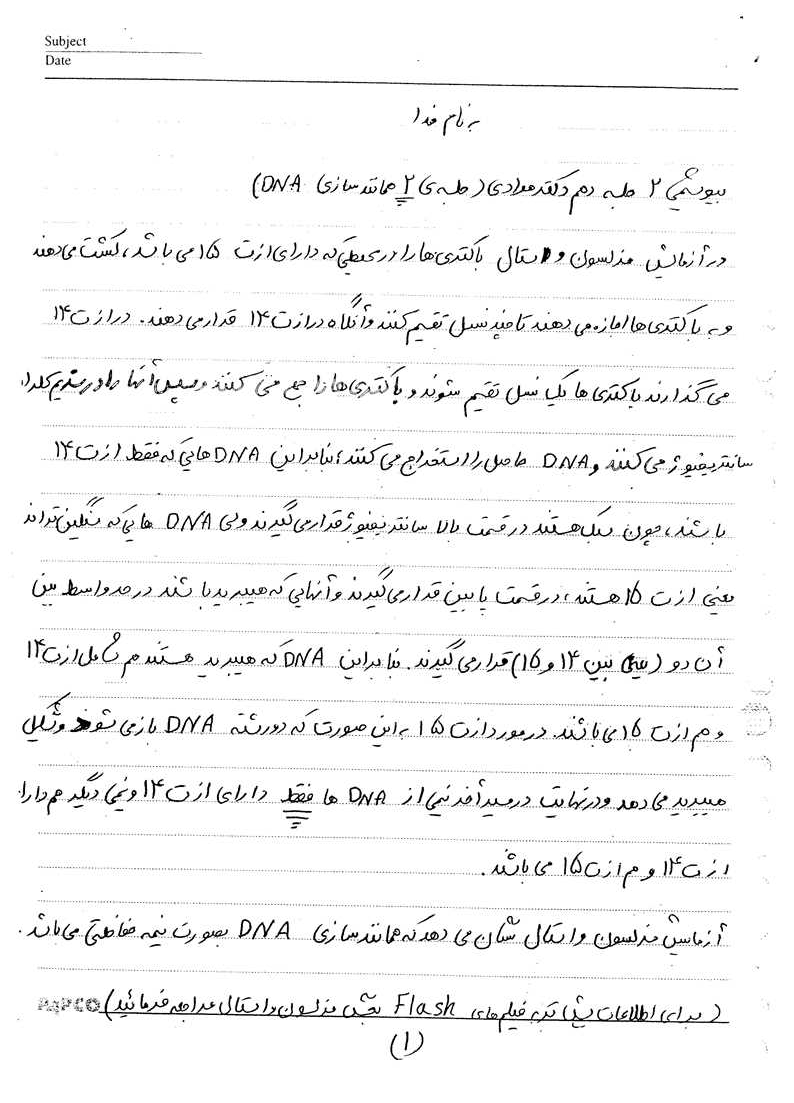 Subject
Date
به نام خدا
بیوشیمی ۲ جلسه دهم دکتر جوادی (جلسه ی ۲ همانند سازی DNA)
در آزمایش مزلسون و استال باکتری ها را در محیطی که دارای ازت ۱۵ می باشد، کشت می دهند
و به باکتری ها اجازه می دهند تا چند نسل تقسیم کنند و آنگاه در ازت ۱۴ قرار می دهند. در ازت ۱۴
می گذارند باکتری ها یک نسل تقسیم شوند و باکتری ها را جمع می کنند و سپس آنها را در سزیم کلراید
سانتریفیوژ می کنند و DNA حاصل را استخراج می کنند؛ بنابراین DNA هایی که فقط ازت ۱۴
باشند، چون سبک هستند در قسمت بالا سانتریفیوژ قرار می گیرند ولی DNA هایی که سنگین تراند
یعنی ازت ۱۵ هستند، در قسمت پایین قرار می گیرند و آنهایی که هیبرید باشند در حد واسط بین
آن دو (یعنی بین ۱۴ و ۱۵) قرار می گیرند. بنابراین DNA که هیبرید هستند هم شامل ازت ۱۴
و هم ازت ۱۵ می باشند. در مورد ازت ۱۵ به این صورت که دو رشته DNA باز می شوند و تشکیل
هیبرید می دهد و در نهایت در مسیر آخر نیمی از DNA ها فقط دارای ازت ۱۴ و نیمی دیگر هم دارای
ازت ۱۴ و هم ازت ۱۵ می باشد.
آزمایش مزلسون و استال نشان می دهد که همانند سازی DNA بصورت نیمه حفاظتی می باشد.
(برای اطلاعات بیشتر به فیلم های Flash بخش مزلسون و استال مراجعه فرمائید)
PAPCO
(۱)